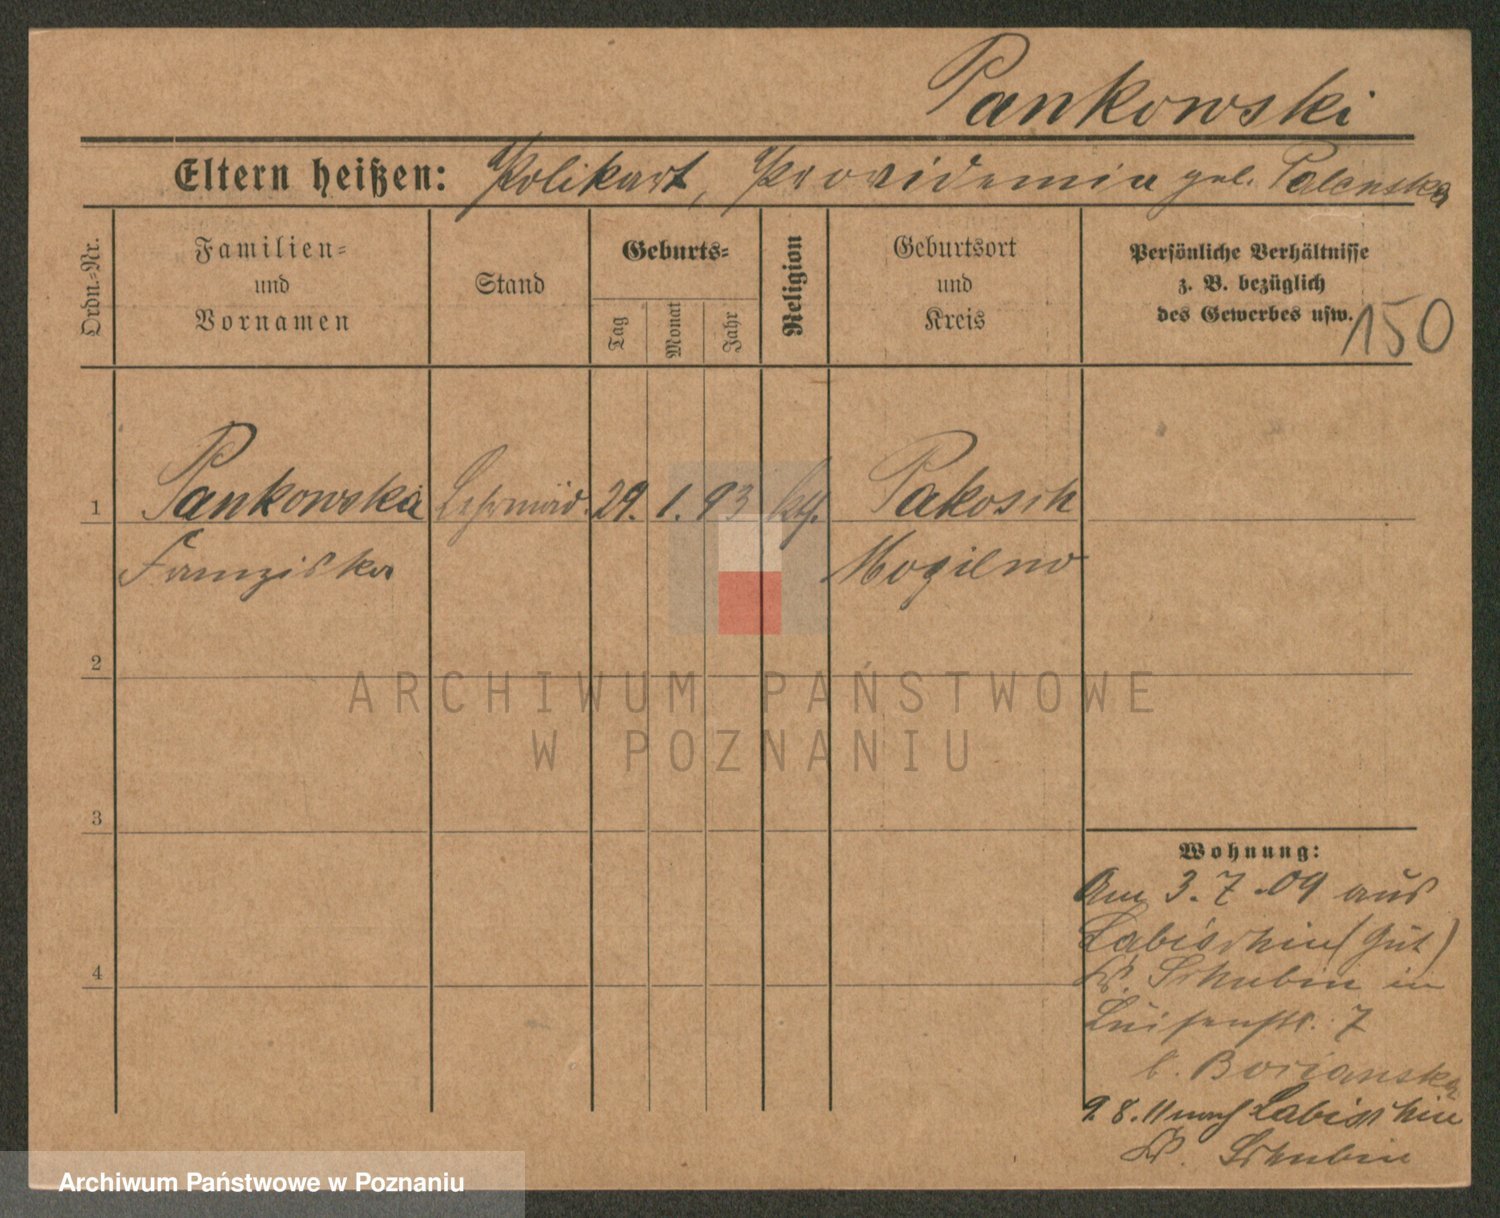 Pankowski
Eltern heißen: Polikart, Providemia geb. Palenska
Ordn.-Nr.
Familien-
und
Vornamen
Stand
Geburts-
Tag
Monat
Jahr
Religion
Geburtsort
und
Kreis
Persönliche Verhältnisse
z. B. bezüglich
des Gewerbes usw.
150
1
Pankowska Lehrmäd. 29. 1. 93 kth. Pakosch
Franziska Mogilno
2
3
4
Wohnung:
Am 3.7.09 aus
Labischin (Gut)
Kr. Schubin in
Luisenstr. 7
b. Borianska
9.8.11 nach Labischin
Kr. Schubin
ARCHIWUM PAŃSTWOWE
W POZNANIU
Archiwum Państwowe w Poznaniu